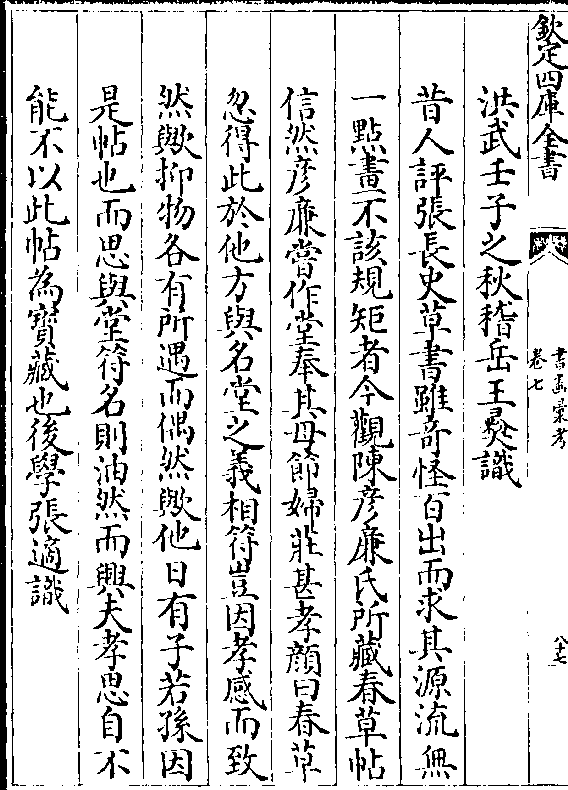 欽定四庫全書
書畫彙考
卷七
八十七
洪武壬子之秋稽岳王㷆識
昔人評張長史草書雖奇怪百出而求其源流無
一點畫不該規矩者今觀陳彦廉氏所藏春草帖
信然彦廉嘗作堂奉其母節婦莊甚孝顔曰春草
忽得此於他方與名堂之義相符豈因孝感而致
然歟抑物各有所遇而偶然歟他日有子若孫因
是帖也而思與堂符名則油然而興夫孝思自不
能不以此帖為寳藏也後學張適識